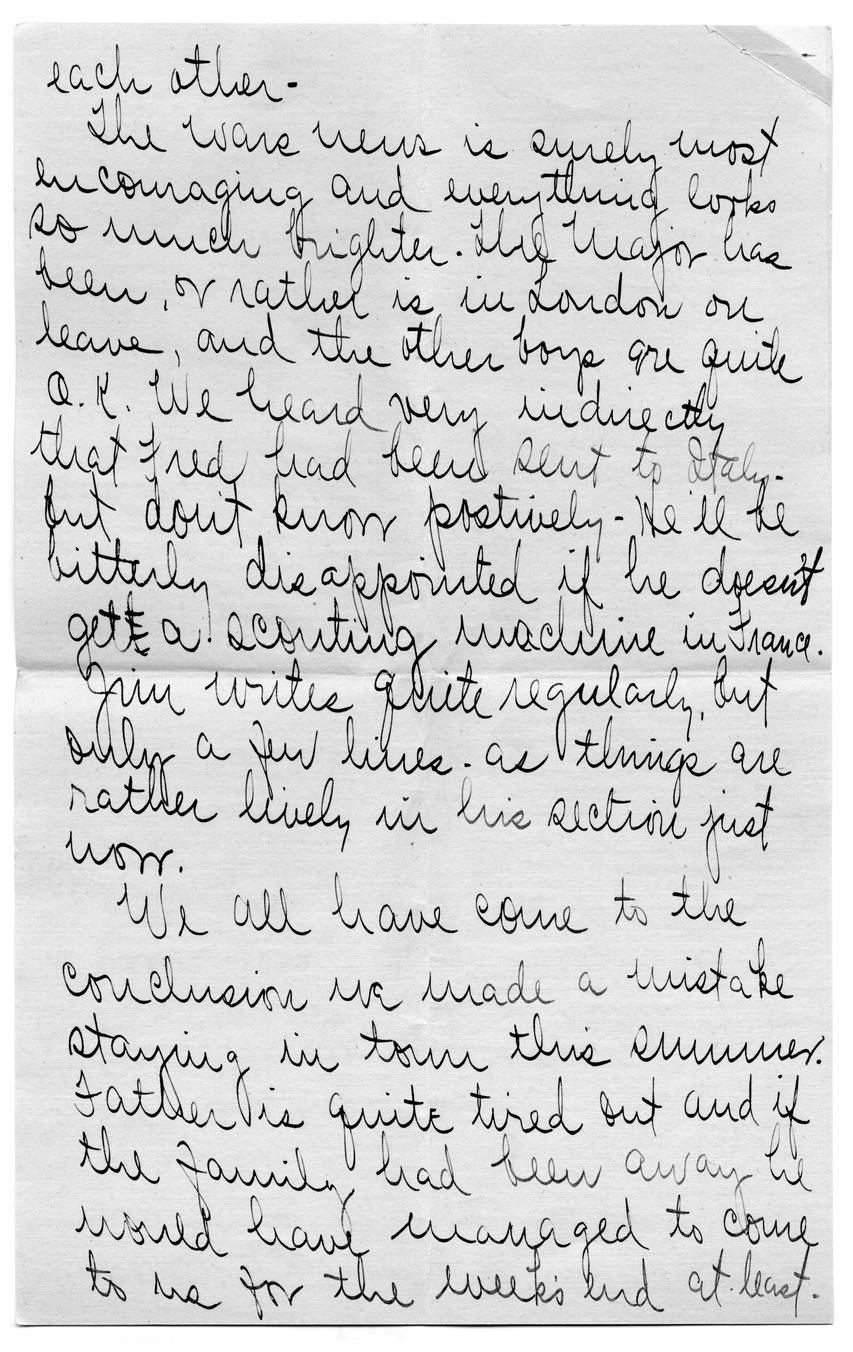 each other-
The wars news is surely most
encouraging and everything looks
so much brighter. The Major has
been, or rather is in London on
leave, and the other boys are quite
O.K. We heard very indirectly
that Fred had been sent to Italy-
but don't know postively- He'll be
bitterly disappointed if he doesn't
gett a scouting machine in France.
Jim writes quite regularly, but
only a few lines- as things are
rather lively in his section just
now.
We all have come to the
conclusion we made a mistake
staying in town this summer.
Father is quite tired out and if
the family had been away he
would have managed to come
to us for the week's end at least.